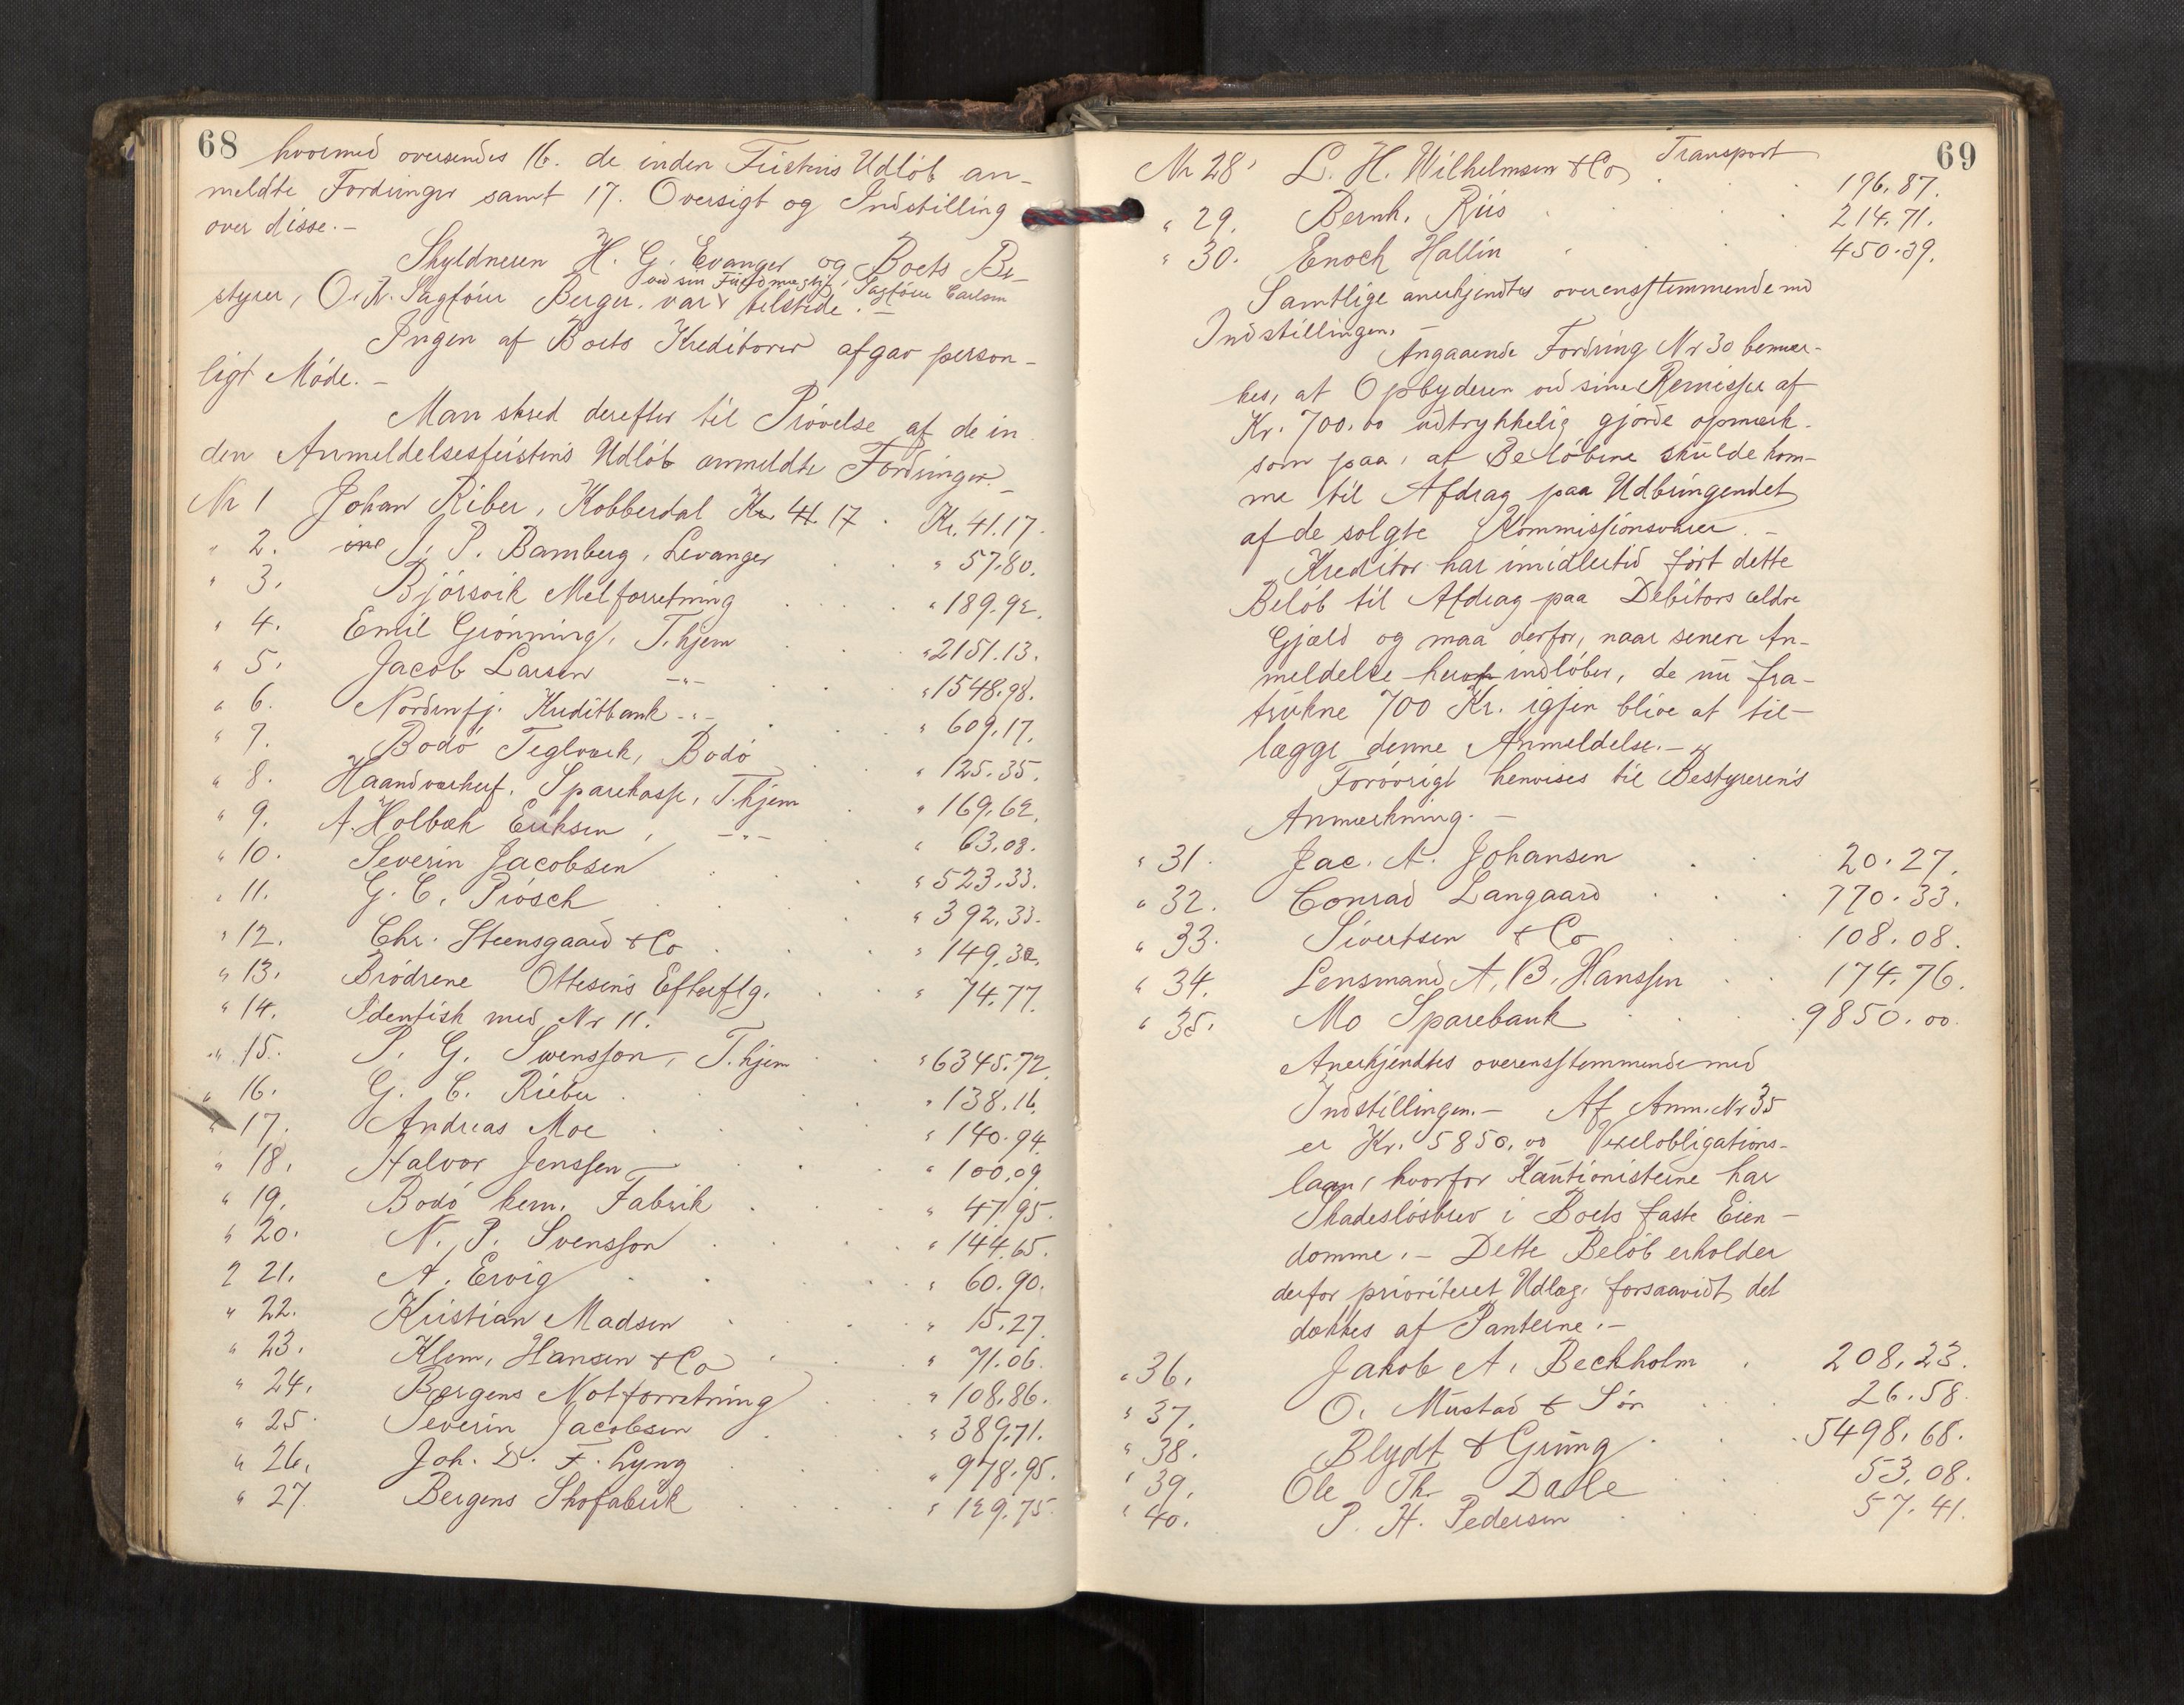 68
hvormed oversendes 16. de inden Fristens Udløb an-
meldte Fordringer samt 17. Oversigt og Indstilling
over disse.-
Skyldneren H. G. Evanger og Boets Be-
ved sin Fuldmægtig, Sagfører Carlsen
styrer, O.r.Sagfører Berger. var tilstede.-
Ingen af Boets Kreditorer afgav person-
ligt Møde.-
Man skred derefter til Prøvelse af de in
den Anmeldelsesfristens Udløb anmeldte Fordringer.-
Nr 1 Johan Riber, Kobberdal Kr. 41.17 . Kr. 41.17.
" 2. J. P. Bamberg, Levanger . . " 57.80.
" 3. Bjørsvik Melforretning . . . " 189.92.
" 4. Emil Grønning, T.hjem . . " 2151.13.
" 5. Jacob Larsen -"- . . " 1548.98.
" 6. Nordenfj. Kreditbank -"- . . " 609.17.
" 7. Bodø Teglværk, Bodø . . " 125.35.
" 8. Haandværkerf. Sparekasse, T.hjem . " 169.62.
" 9. A. Holbæk Eriksen, -"- . " 63.08.
" 10. Severin Jacobsen . . . " 523.33.
" 11. G. C. Prøsch . . . " 392.33.
" 12. Chr. Steensgaard & Co . . . " 149.32.
" 13. Brødrene Ottesens Efterflg. . . " 74.77.
" 14. Identisk med Nr 11.
" 15. P. G. Swensson, T.hjem . " 6345.72.
" 16. G. C. Rieber . . . " 138.16.
" 17. Andreas Moe . . . " 140.94.
" 18. Halvor Jenssen . . . " 100.09.
" 19. Bodø kem. Fabrik . . . " 47.95.
" 20. N. P. Svensson . . . " 144.65.
" 21. A. Ervig . . . " 60.90.
" 22. Kristian Madsen . . . " 15.27.
" 23. Klem, Hansen & Co . . . " 71.06.
" 24. Bergens Notforretning . . " 108.86.
" 25. Severin Jacobsen . . " 389.71.
" 26. Joh. D. F. Lyng . . . " 978.95.
" 27 Bergens Skofabrik . . . . " 129.75.
69
Transport
Nr 28. L. H. Wilhelmsen & Co . . . 196.87.
" 29. Bernh. Riis . . . . 214.71.
" 30. Enoch Hallin . . . 450.39.
Samtlige anerkjendtes overensstemmende med
Indstillingen.-
Angaaende Fordring Nr 30 bemær-
kes, at Opbyderen ved sine Remisser af
Kr. 700.00 udtrykkelig gjorde opmærk-
som paa, at Beløbene skulde kom-
me til Afdrag paa Udbringendet
af de solgte Kommissionsvarer.-
Kreditor har imidlertid ført dette
Beløb til Afdrag paa Debitors ældre
Gjæld og maa derfor, naar senere An-
meldelse herom indløber, de nu fra-
trukne 700 Kr. igjen blive at til-
lægge denne Anmeldelse.-
Forøvrigt henvises til Bestyrerens
Anmærkning.-
" 31. Jac. A. Johansen . . 20.27.
" 32. Conrad Langaard . . . 770.33.
" 33. Sivertsen & Co . . 108.08.
" 34. Lensmand A. B. Hanssen . . 174.76.
" 35. Mo Sparebank . . . . 9850.00.
Anerkjendtes overensstemmende med
Indstillingen.- Af Anm. Nr 35
er Kr. 5850.00 Vexelobligations-
laan, hvorfor Kautionisterne har
Skadesløsbrev i Boets faste Eien-
domme.- Dette Beløb erholder
derfor prioriteret Udlæg, forsaavidt det
dækkes af Panterne.-
" 36. Jakob A. Beckholm . 208.23.
" 37. O. Mustad & Søn . . . 26.58.
" 38. Blydt & Grung . . . 5498.68.
" 39. Ole Th. Dale . . 53.08.
" 40. P. H. Pedersen . . . 57.41.